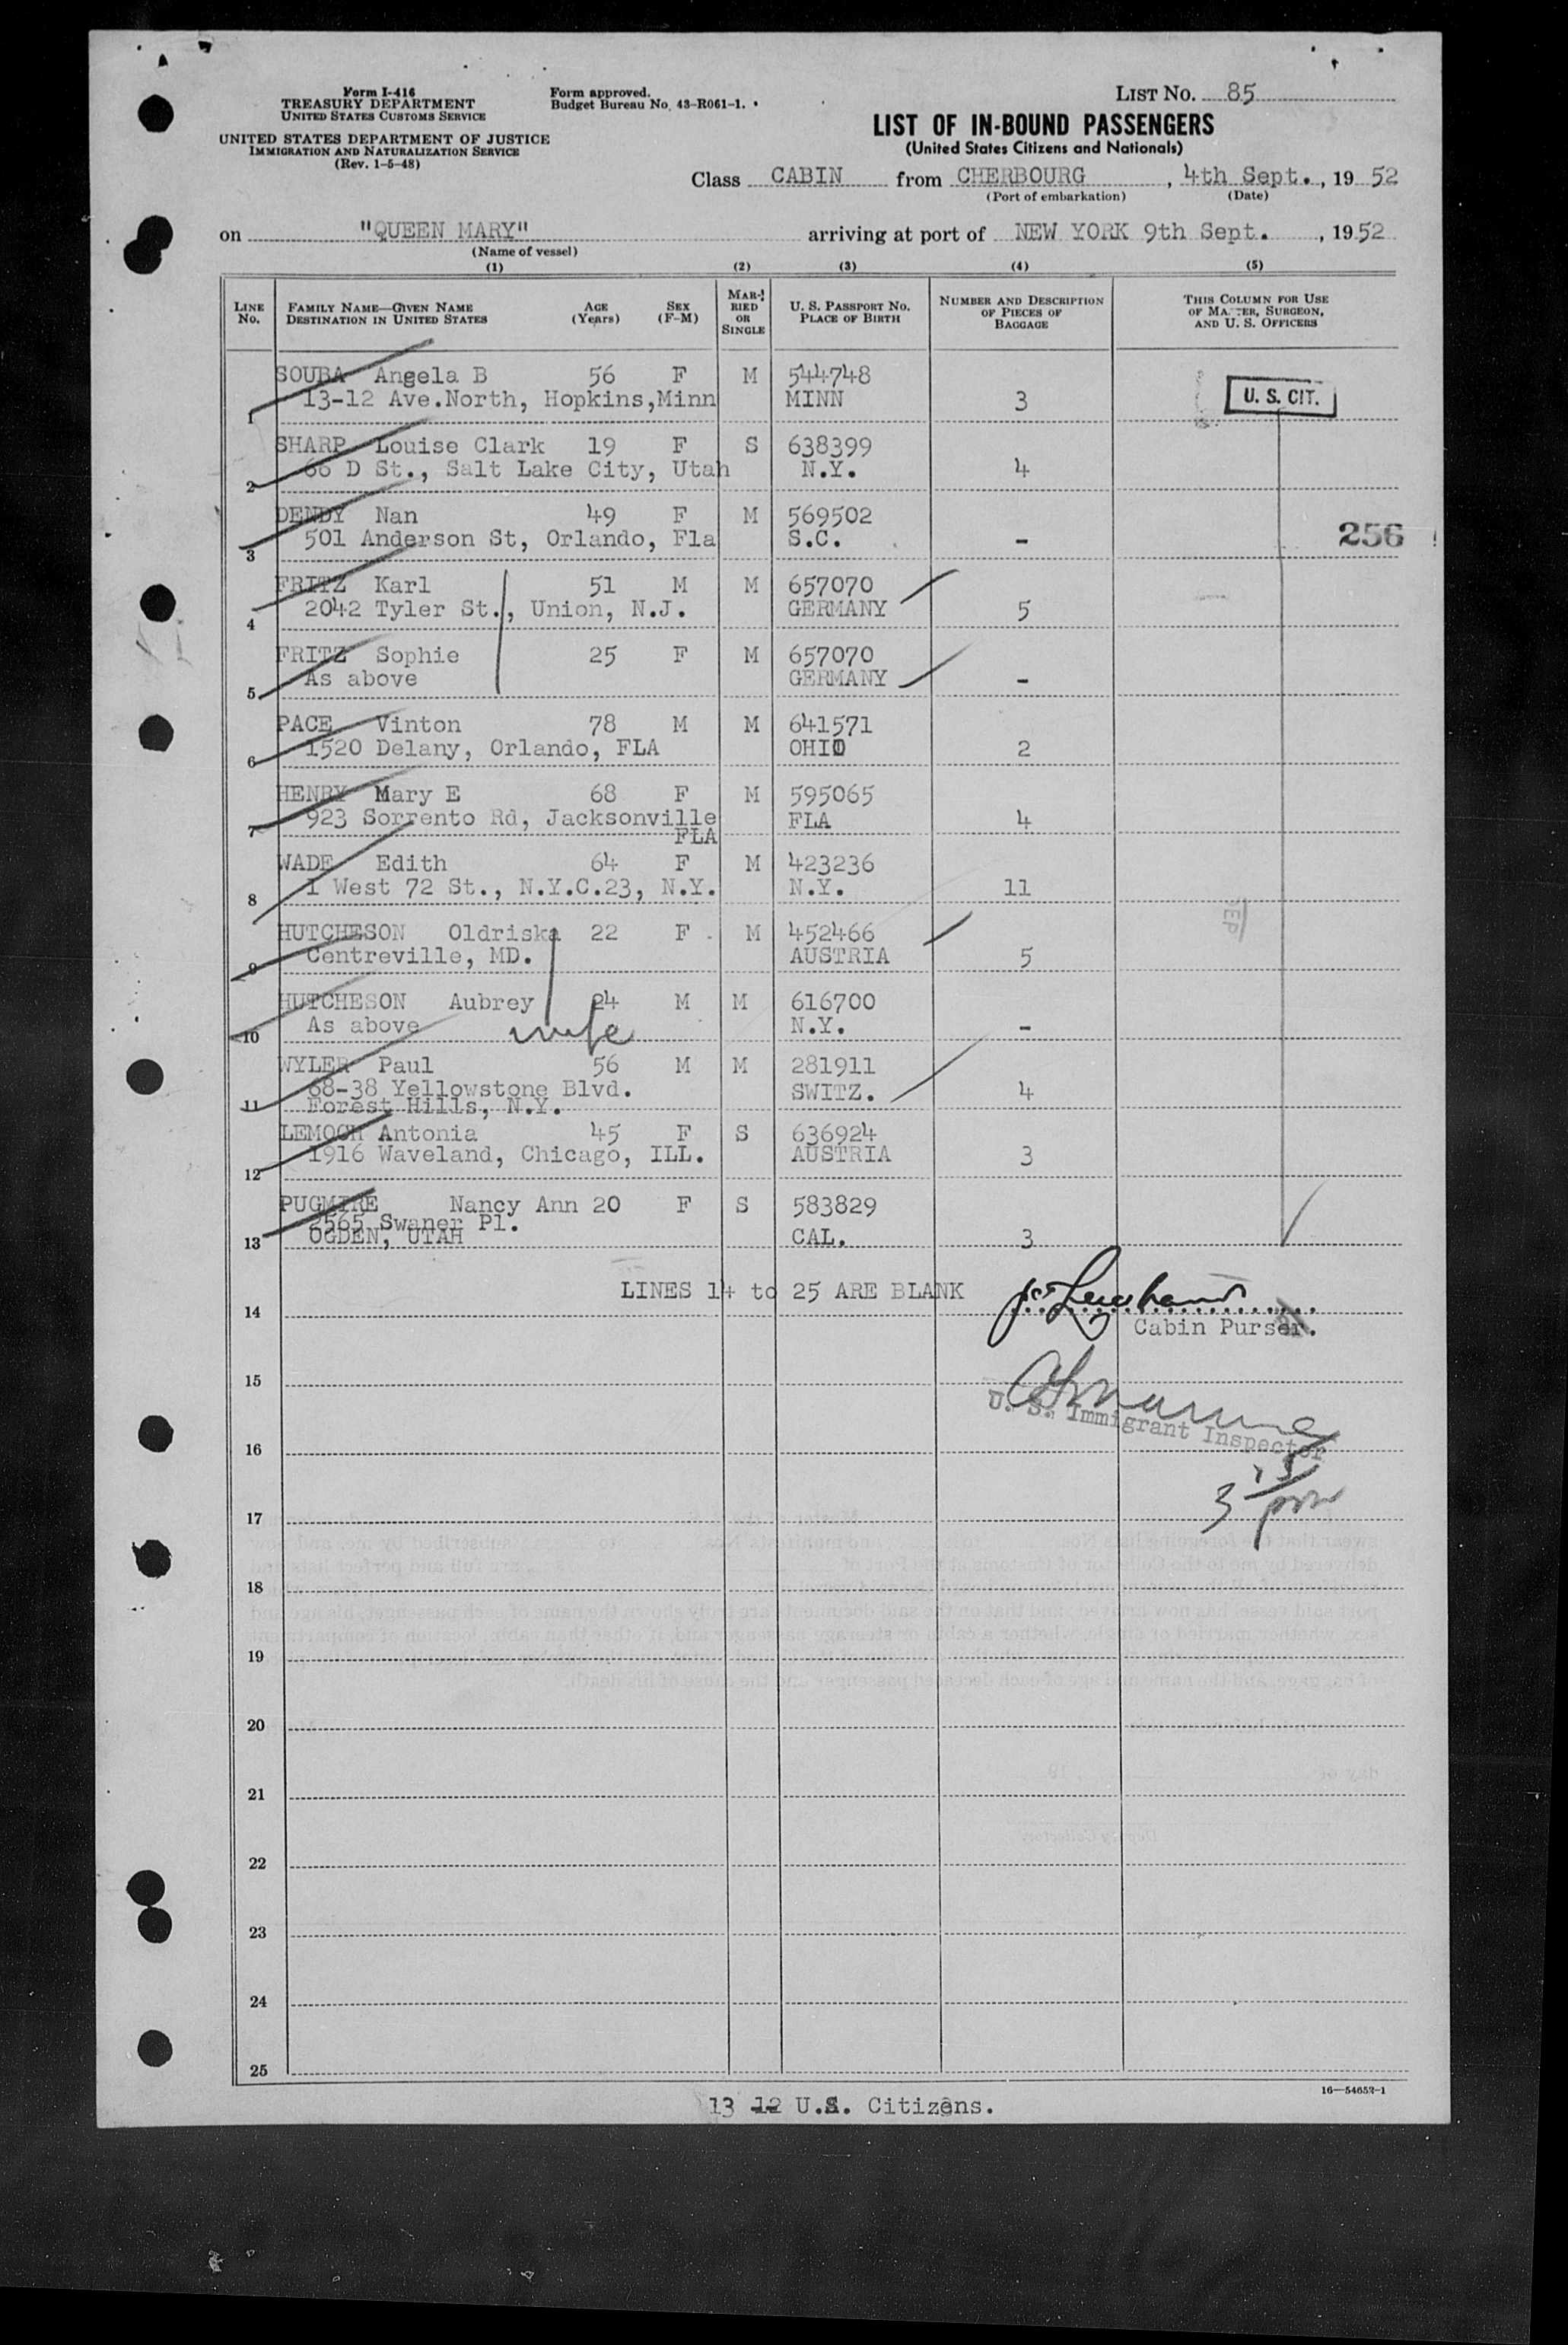 Form I-416
TREASURY DEPARTMENT
UNITED STATES CUSTOMS SERVICE
UNITED STATES DEPARTMENT OF JUSTICE
IMMIGRATION AND NATURALIZATION SERVICE
(Rev. 1-5-48)
Form approved.
Budget Bureau No. 43-R061-1.
LIST NO. 85
LIST OF IN-BOUND PASSENGERS
(United States Citizens and Nationals)
Class CABIN from CHERBOURG, 4th Sept., 1952
(Port of embarkation) (Date)
on "QUEEN MARY" arriving at port of NEW YORK 9th Sept., 1952
(Name of vessel)
(1) (2) (3) (4) (5)
LINE No. FAMILY NAME—GIVEN NAME DESTINATION IN UNITED STATES AGE (Years) SEX (F-M) MARRIED OR SINGLE U. S. PASSPORT NO. PLACE OF BIRTH NUMBER AND DESCRIPTION OF PIECES OF BAGGAGE THIS COLUMN FOR USE OF MASTER, SURGEON, AND U. S. OFFICERS
SOUBA Angela B 56 F M 544748
1 13-12 Ave.North, Hopkins,Minn MINN 3 U. S. CIT.
SHARP Louise Clark 19 F S 638399
2 66 D St., Salt Lake City, Utah N.Y. 4
DENDY Nan 49 F M 569502
3 501 Anderson St, Orlando, Fla S.C. - 256
FRITZ Karl 51 M M 657070
4 2042 Tyler St., Union, N.J. GERMANY 5
FRITZ Sophie 25 F M 657070
5 As above GERMANY -
PACE Vinton 78 M M 641571
6 1520 Delany, Orlando, FLA OHIO 2
HENRY Mary E 68 F M 595065
7 923 Sorrento Rd, Jacksonville FLA 4
FLA
WADE Edith 64 F M 423236
8 1 West 72 St., N.Y.C.23, N.Y. N.Y. 11
HUTCHESON Oldriska 22 F M 452466
9 Centreville, MD. AUSTRIA 5
HUTCHESON Aubrey 24 M M 616700
10 As above wife N.Y. -
WYLER Paul 56 M M 281911
68-38 Yellowstone Blvd. SWITZ. 4
11 Forest Hills, N.Y.
LEMOCH Antonia 45 F S 636924
12 1916 Waveland, Chicago, ILL. AUSTRIA 3
PUGMIRE Nancy Ann 20 F S 583829
2565 Swaner Pl.
13 OGDEN, UTAH CAL. 3
LINES 14 to 25 ARE BLANK
14
Cabin Purser.
15
U. S. Immigrant Inspector
16
17
18
19
20
21
22
23
24
25
16—54652-1
13 12 U.S. Citizens.